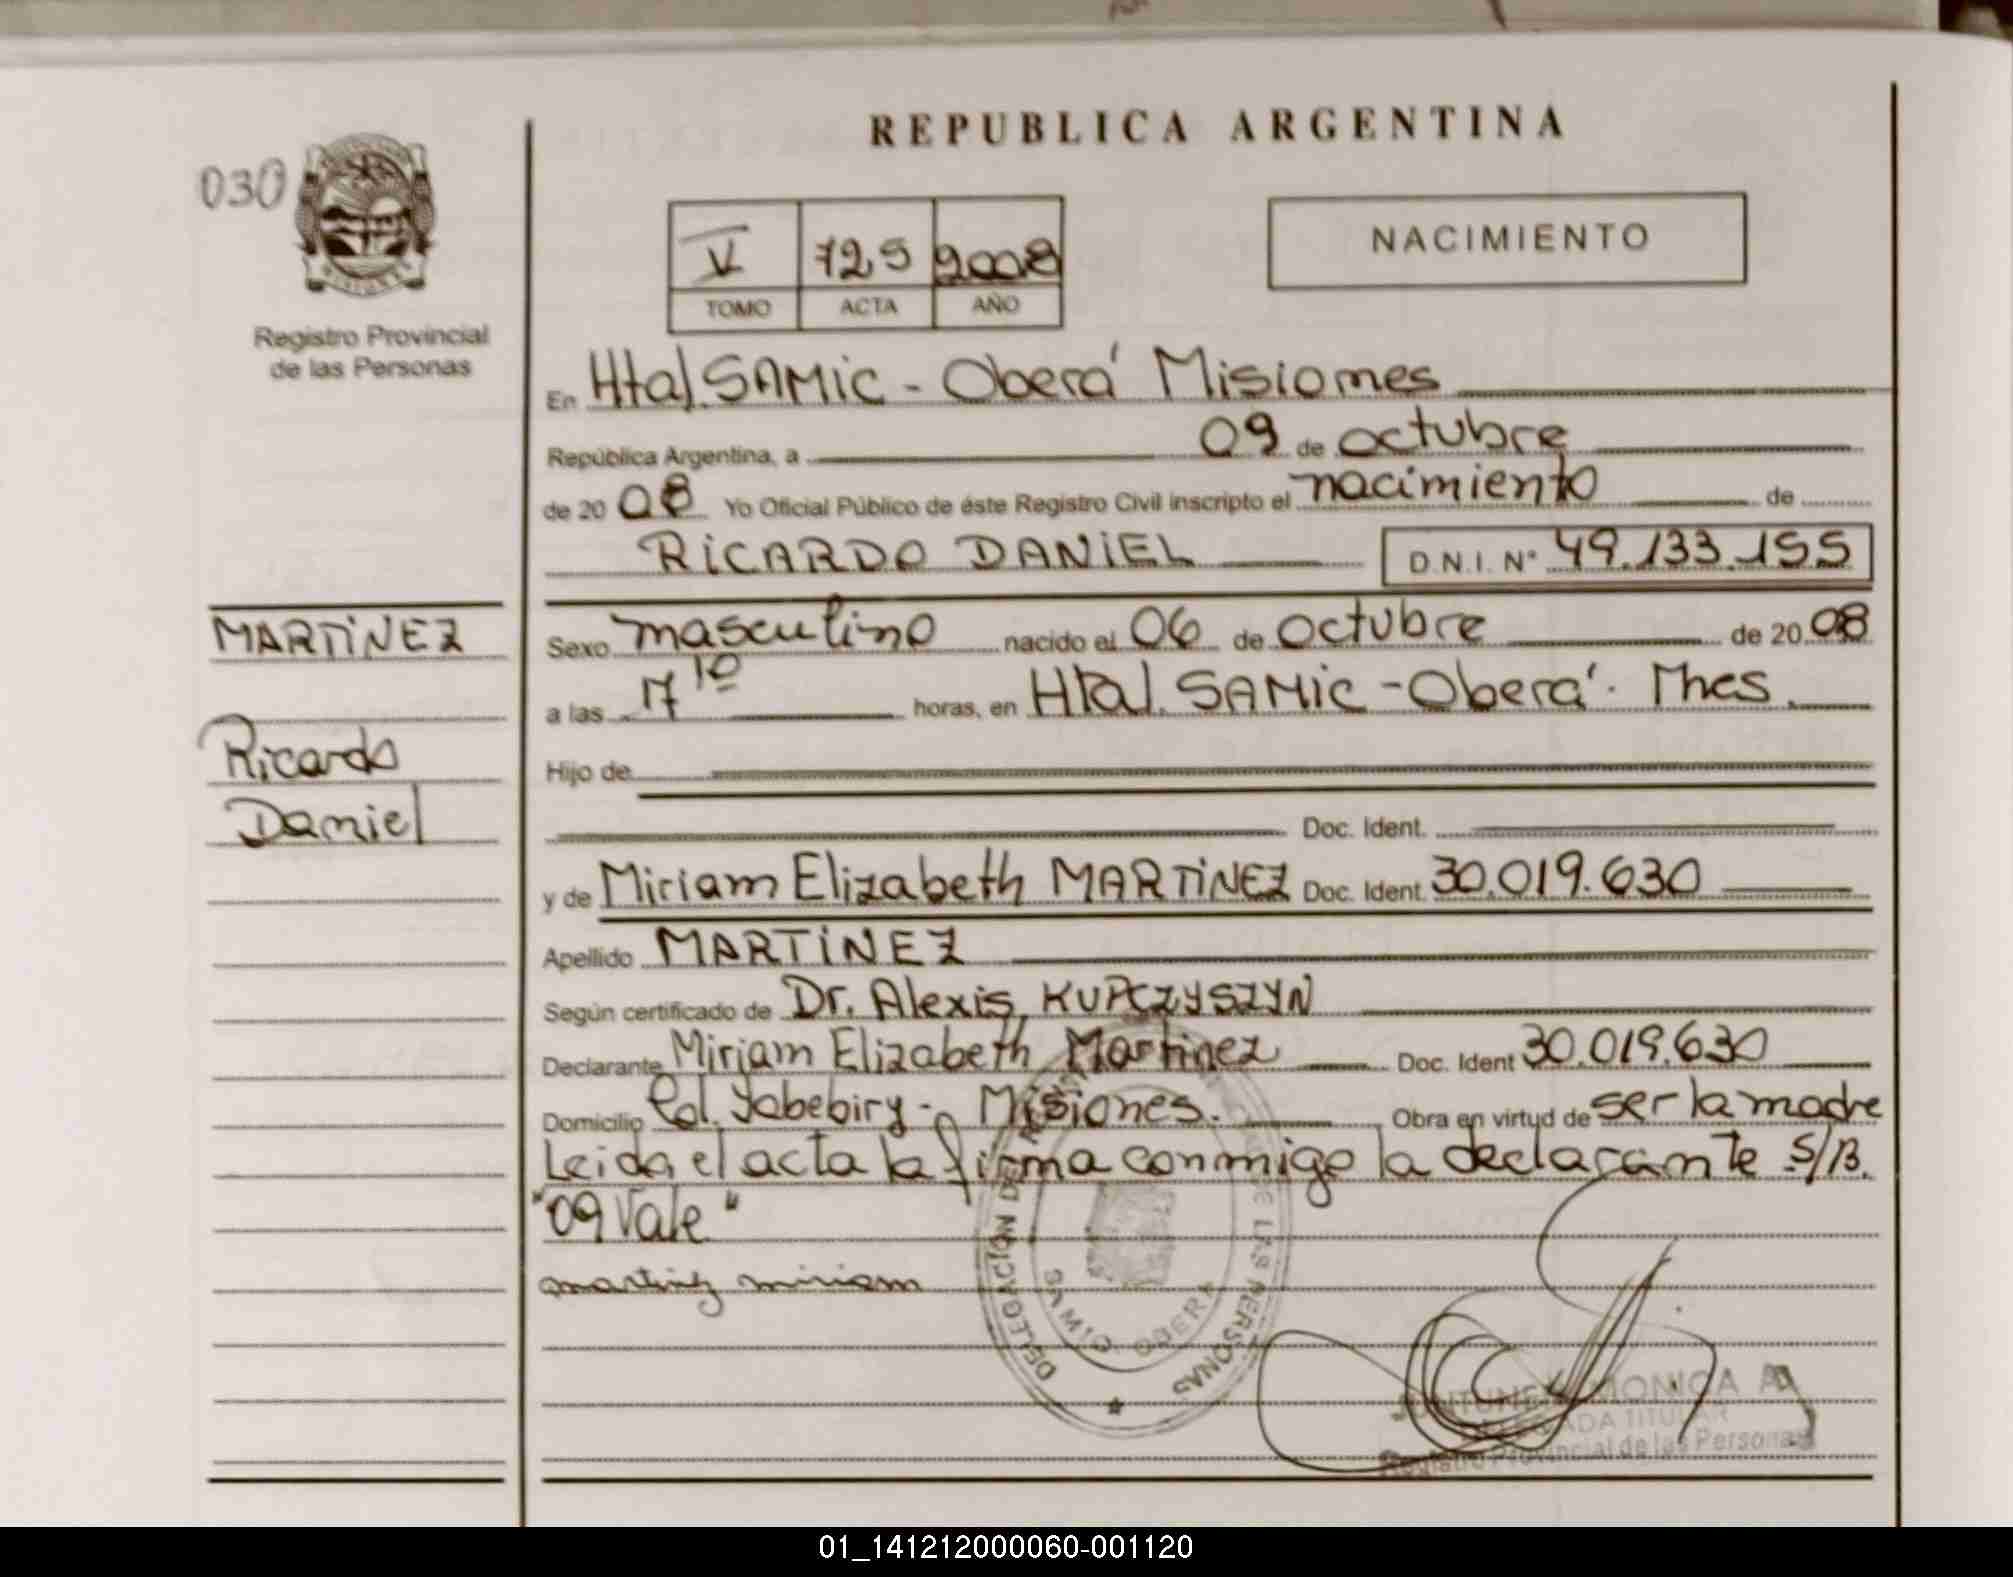 REPUBLICA ARGENTINA
030
V 725 2008
TOMO ACTA AÑO
NACIMIENTO
Registro Provincial
de las Personas
En Htal. SAMIC - Oberá Misiones
República Argentina, a 09 de octubre
de 20 08 Yo Oficial Público de éste Registro Civil inscripto el nacimiento de
RICARDO DANIEL D.N.I. Nº 49.133.155
MARTINEZ
Ricardo
Daniel
Sexo masculino nacido el 06 de octubre de 20 08
a las 17 10 horas, en Htal. SAMIC - Oberá. Mnes.
Hijo de
Doc. Ident.
y de Miriam Elizabeth MARTINEZ Doc. Ident. 30.019.630
Apellido MARTINEZ
Según certificado de Dr. Alexis KUPCZYSZYN
Declarante Miriam Elizabeth Martinez Doc. Ident 30.019.630
Domicilio Col. Yabebiry - Misiones. Obra en virtud de ser la madre
Leida el acta la firma conmigo la declarante S/B.
"09 Vale"
martinez miriam
DELEGACION DE LAS PERSONAS
SAMIC OBERA
MONICA A
TITULAR
Registro Provincial de las Personas
01_141212000060-001120